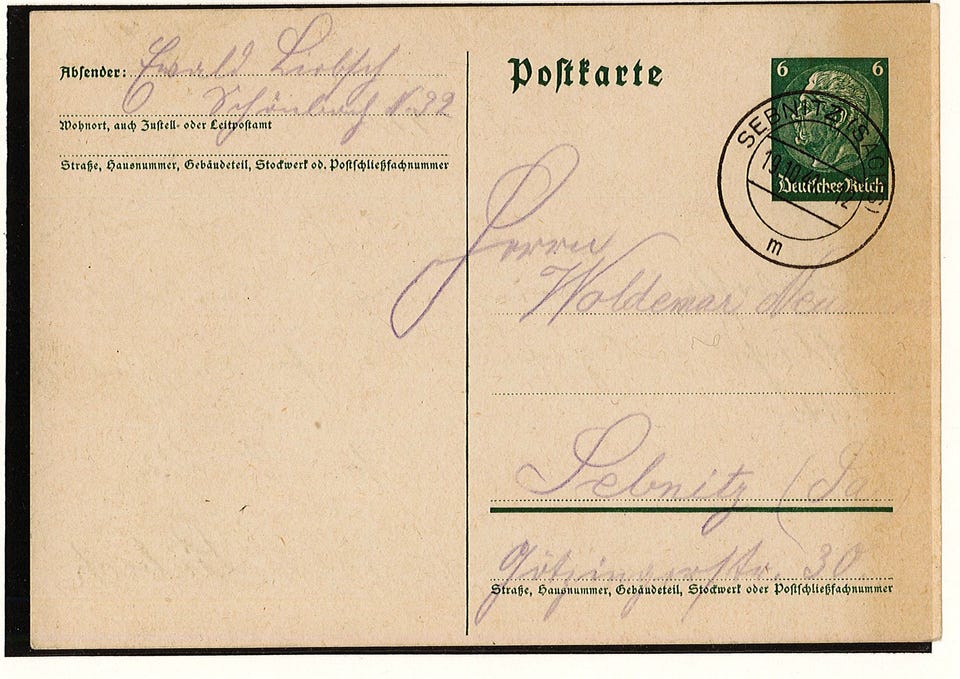 Absender: Ewald Liebsch
Schönbach N. 22
Wohnort, auch Zustell- oder Leitpostamt
Straße, Hausnummer, Gebäudeteil, Stockwerk od. Postschließfachnummer
Postkarte
6 6
Deutsches Reich
SEBNITZ (SACHS)
19.10.
12
m
Herrn
Woldemar
Sebnitz (Sa
Götzingerstr. 30
Straße, Hausnummer, Gebäudeteil, Stockwerk oder Postschließfachnummer